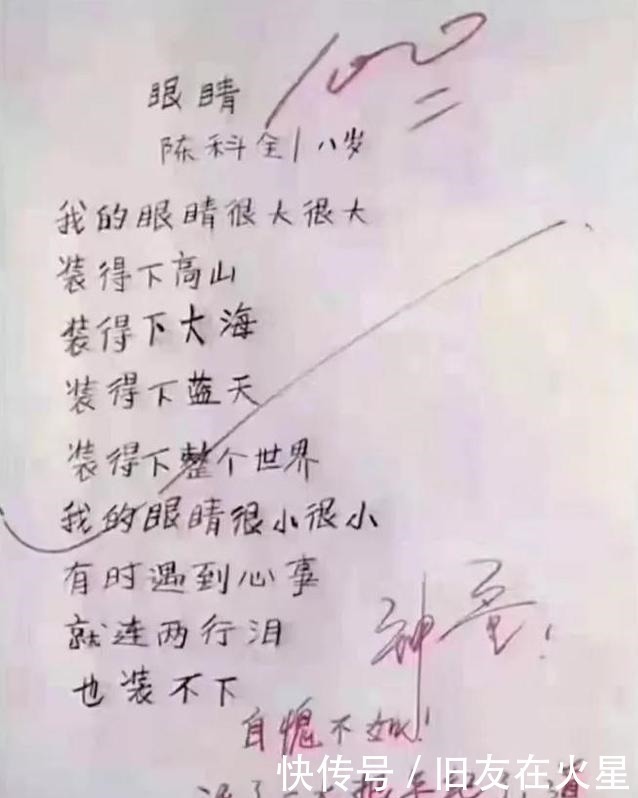 100
眼睛
陈科全/八岁
我的眼睛很大很大
装得下高山
装得下大海
装得下蓝天
装得下整个世界
我的眼睛很小很小
有时遇到心事
就连两行泪
也装不下
神童!
自愧不如!
快传号/旧友在火星